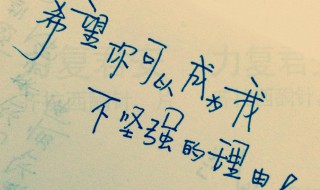 希望你可以成为我
不坚强的理由！